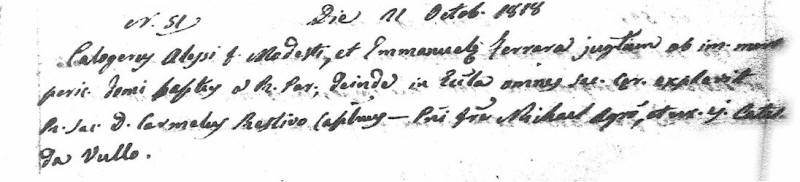 N. 51 Die 21 Octob. 1818
Calogerus Alessi f. Modesti, et Emmanuela Ferrara jugalium ob im. mort.
peric. domi baptus a R. Par; deinde in Eccla omnes sac. cer. explevit
R. Sac. D. Carmelus Restivo Capnus — Pni frt Michael Agrò, et ux. ej. Catal
da Vullo.